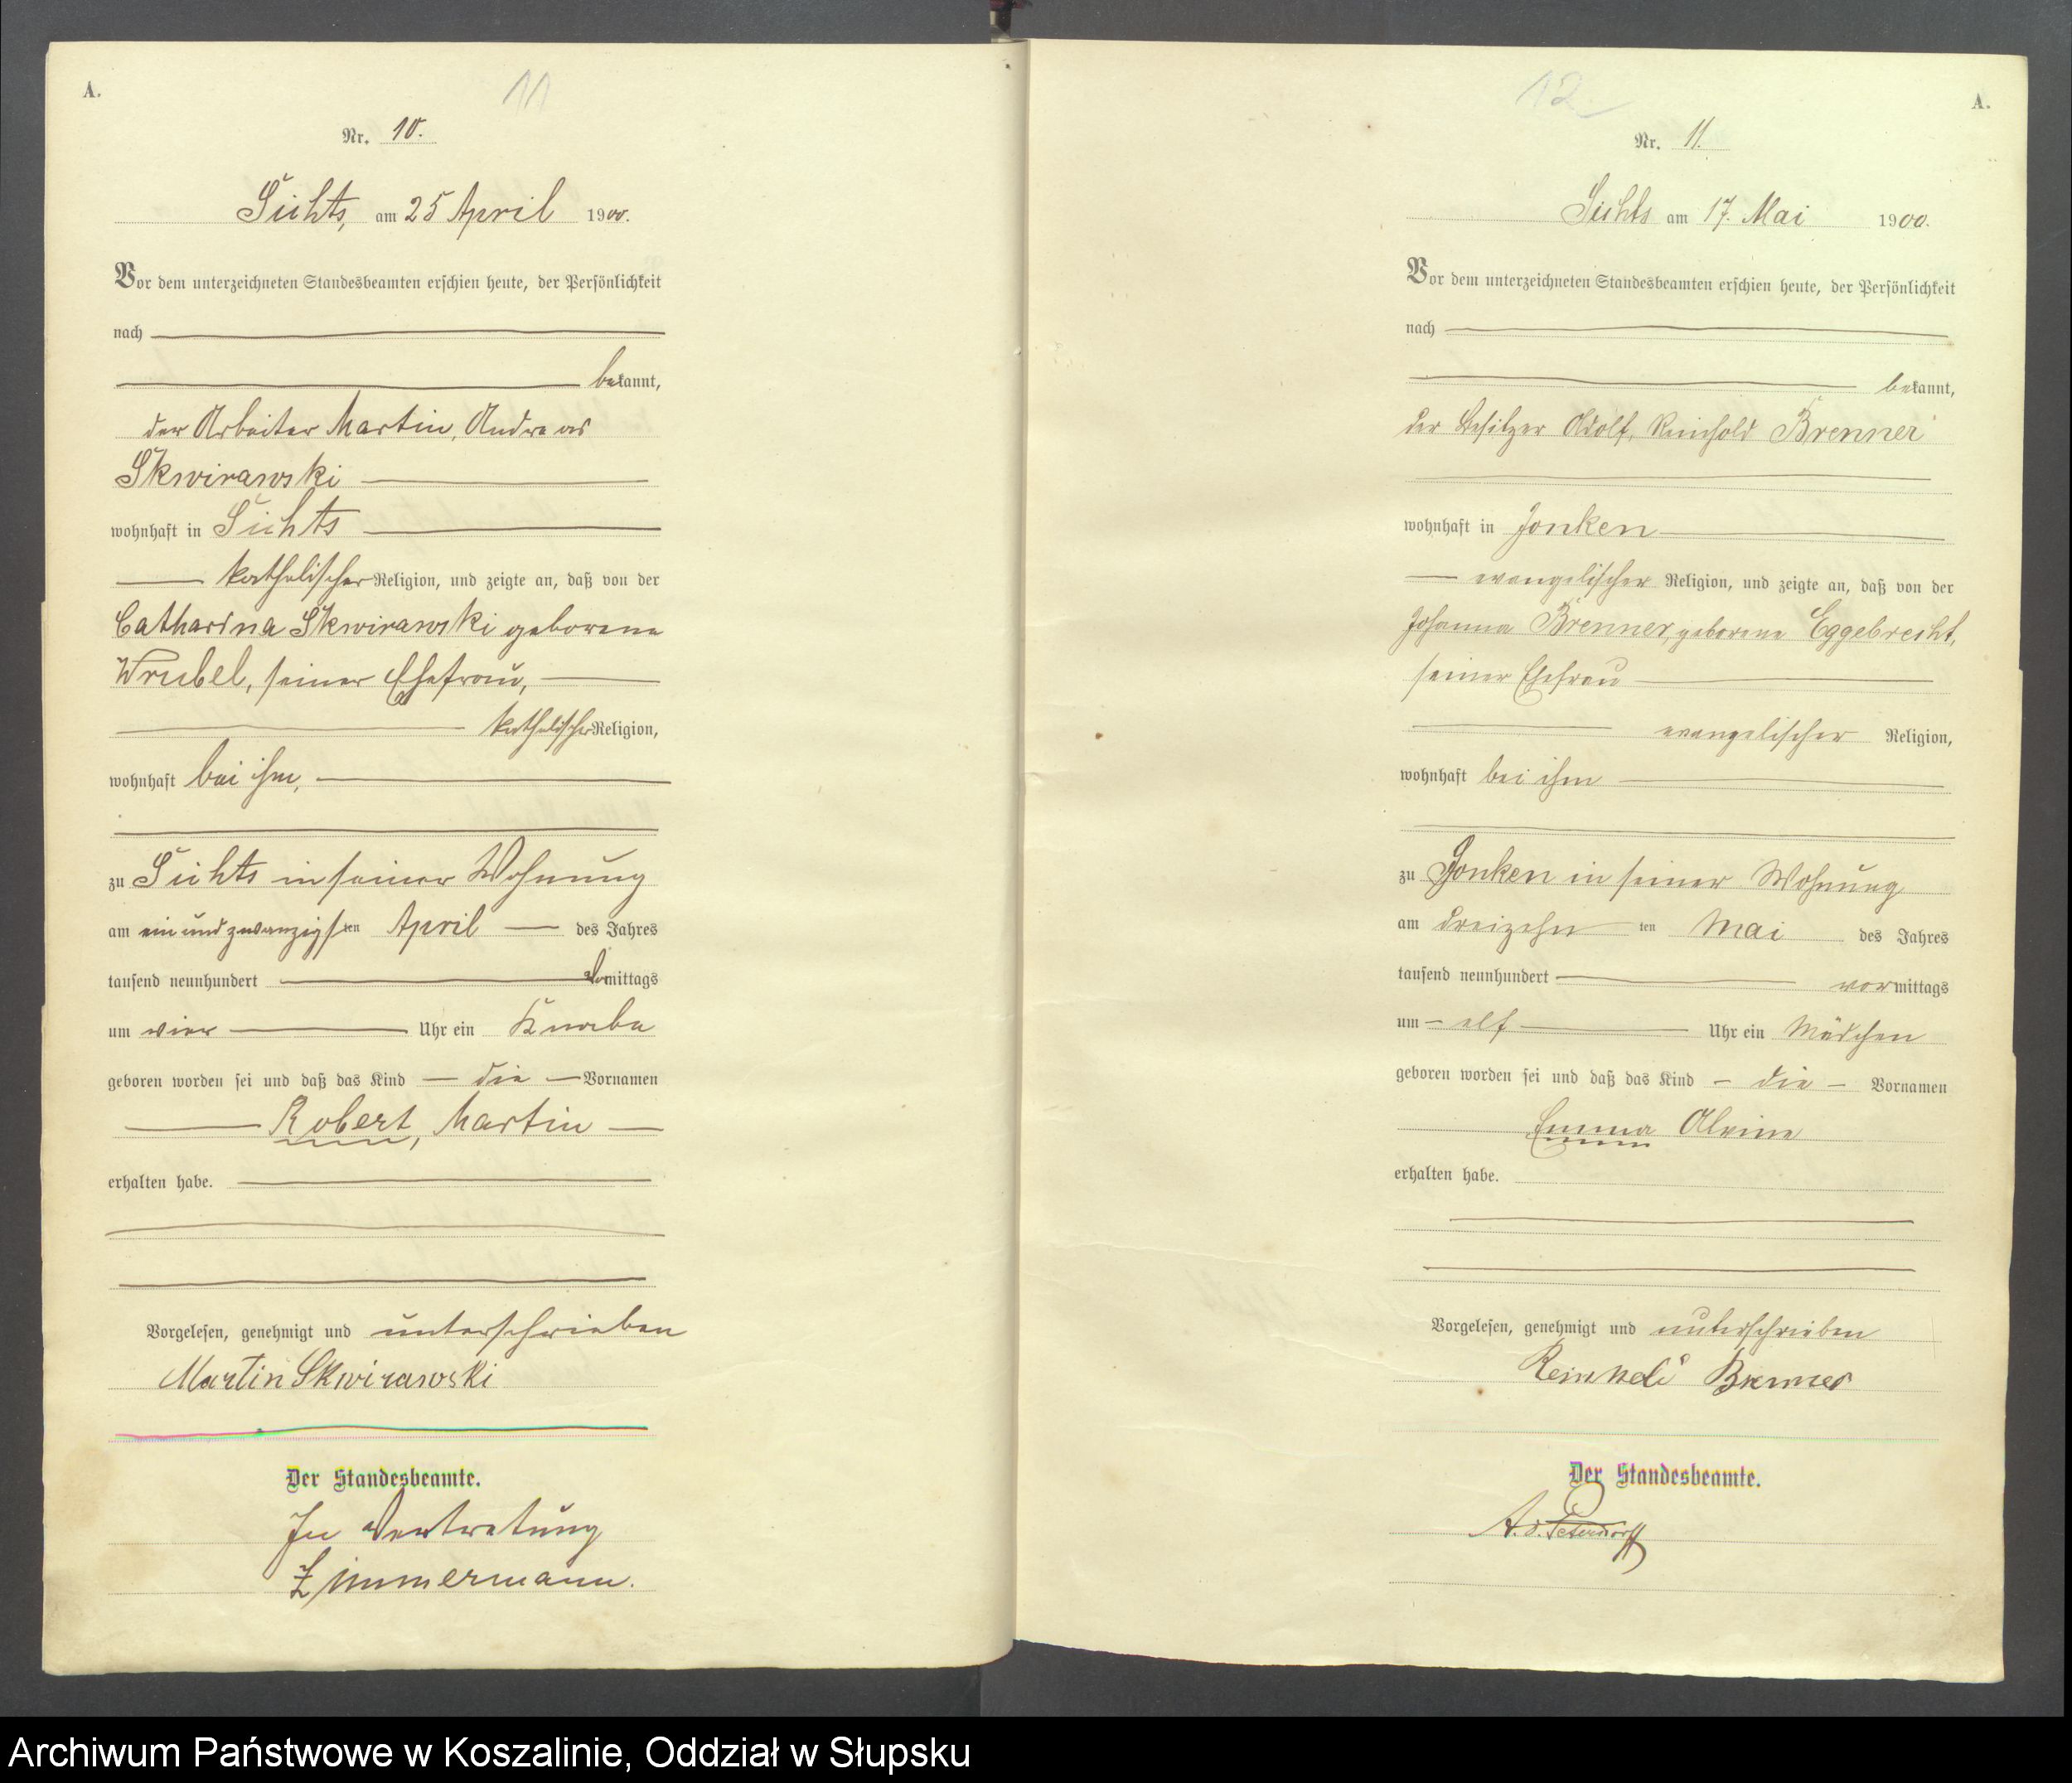 A.
11
Nr. 10.
Sichts, am 25 April 1900.
Vor dem unterzeichneten Standesbeamten erschien heute, der Persönlichkeit
nach
bekannt,
der Arbeiter Martin, Andreas
Skwirawski
wohnhaft in Sichts
katholischer Religion, und zeigte an, daß von der
Catharina Skwirawski geborene
Wrubel, seiner Ehefrau,
katholischer Religion,
wohnhaft bei ihm,
zu Sichts in seiner Wohnung
am ein und zwanzigsten April des Jahres
tausend neunhundert Vormittags
um vier Uhr ein Knabe
geboren worden sei und daß das Kind die Vornamen
Robert, Martin
erhalten habe.
Vorgelesen, genehmigt und unterschrieben
Martin Skwirawski
Der Standesbeamte.
In Vertretung
Zimmermann.
12
A.
Nr. 11.
Sichts am 17. Mai 1900.
Vor dem unterzeichneten Standesbeamten erschien heute, der Persönlichkeit
nach
bekannt,
der Besitzer Adolf, Reinhold Brenner
wohnhaft in Jonken
evangelischer Religion, und zeigte an, daß von der
Johanna Brenner, geborene Eggebrecht,
seiner Ehefrau
evangelischer Religion,
wohnhaft bei ihm
zu Jonken in seiner Wohnung
am dreizehnten Mai des Jahres
tausend neunhundert vormittags
um elf Uhr ein Mädchen
geboren worden sei und daß das Kind die Vornamen
Emma Alvine
erhalten habe.
Vorgelesen, genehmigt und unterschrieben
Reinhold Brenner
Der Standesbeamte.
Archiwum Państwowe w Koszalinie, Oddział w Słupsku